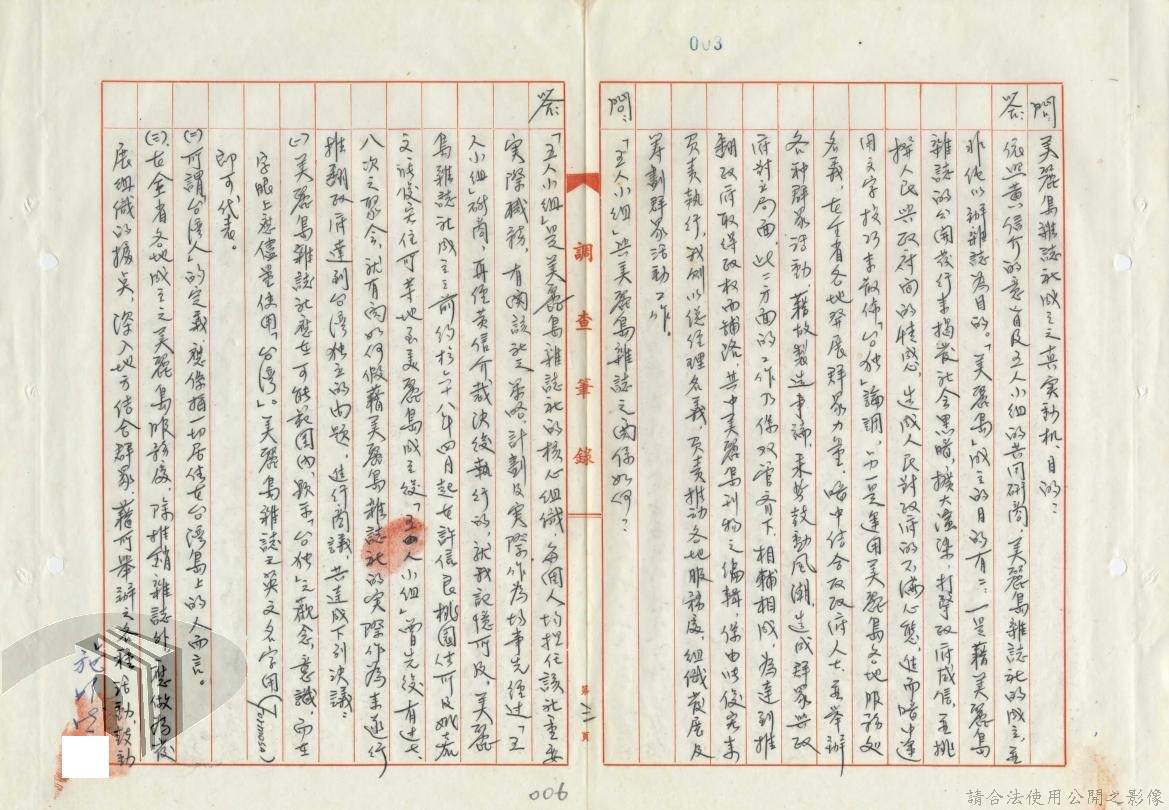 003
問 美麗島雜誌社成立之真實動机、目的？
答： 依照黃信介的意旨及五人小组的共同研商，美麗島雜誌社的成立，並
非僅以辦雜誌為目的。「美麗島」成立的目的有二：一是藉美麗島
雜誌的公開發行來揭發社会黑暗，擴大渲染，打擊政府威信，並挑
撥人民與政府間的情感，造成人民對政府的不滿心態，進而暗中運
用文字技巧來散佈「台独」論調，另一是運用美麗島各地服務处
名義，在全省各地發展群眾力量，暗中結合反政府人士，並舉辦
各种群眾活動，藉故製造事端，乘势鼓動風潮，造成群眾與政
府對立局面，此二方面的工作乃係双管齐下，相輔相成，為達到推
翻政府取得政权而铺路，其中美麗島刊物之编輯係由張俊宏來
负责執行，我则以總经理名義，负责推动各地服務處，组織发展及
筹劃群眾活動工作。
問： 「五人小组」與美麗島雜誌之関係如何？
答： 「五人小组」是美麗島雜誌社的核心组織，每個人均担任該社重要
实際職務，有関該社之策略、計劃及实際作為均事先经过「五
人小组」研商，再经黃信介裁决後執行的，就我記憶所及，美麗
島雜誌社成立之前約於六十八年四月起在許信良桃園住所及姚嘉
文、張俊宏住所等地至美麗島成立後「五人小组」曾先後有过七、
八次之聚会，就有関如何假藉美麗島雜誌社的实際作為來進行
推翻政府達到台灣独立的问题，進行商議，共達成下列决議：
㈠美麗島雜誌社應在可能範围內，顯示「台独」之觀念、意識，而在
字眼上應儘量使用「台灣」。美麗島雜誌之英文名字用(Formosa)
即可代表。
㈡所謂「台灣人」的定義應係指一切居住在台灣島上的人而言。
㈢在全省各地成立之美麗島服務處，除推銷雜誌外，應做為发
展组織的據点，深入地方結合群眾，藉所舉辦之各種活動鼓動
調查筆錄
第二頁
施明德
006
請合法使用公開之影像